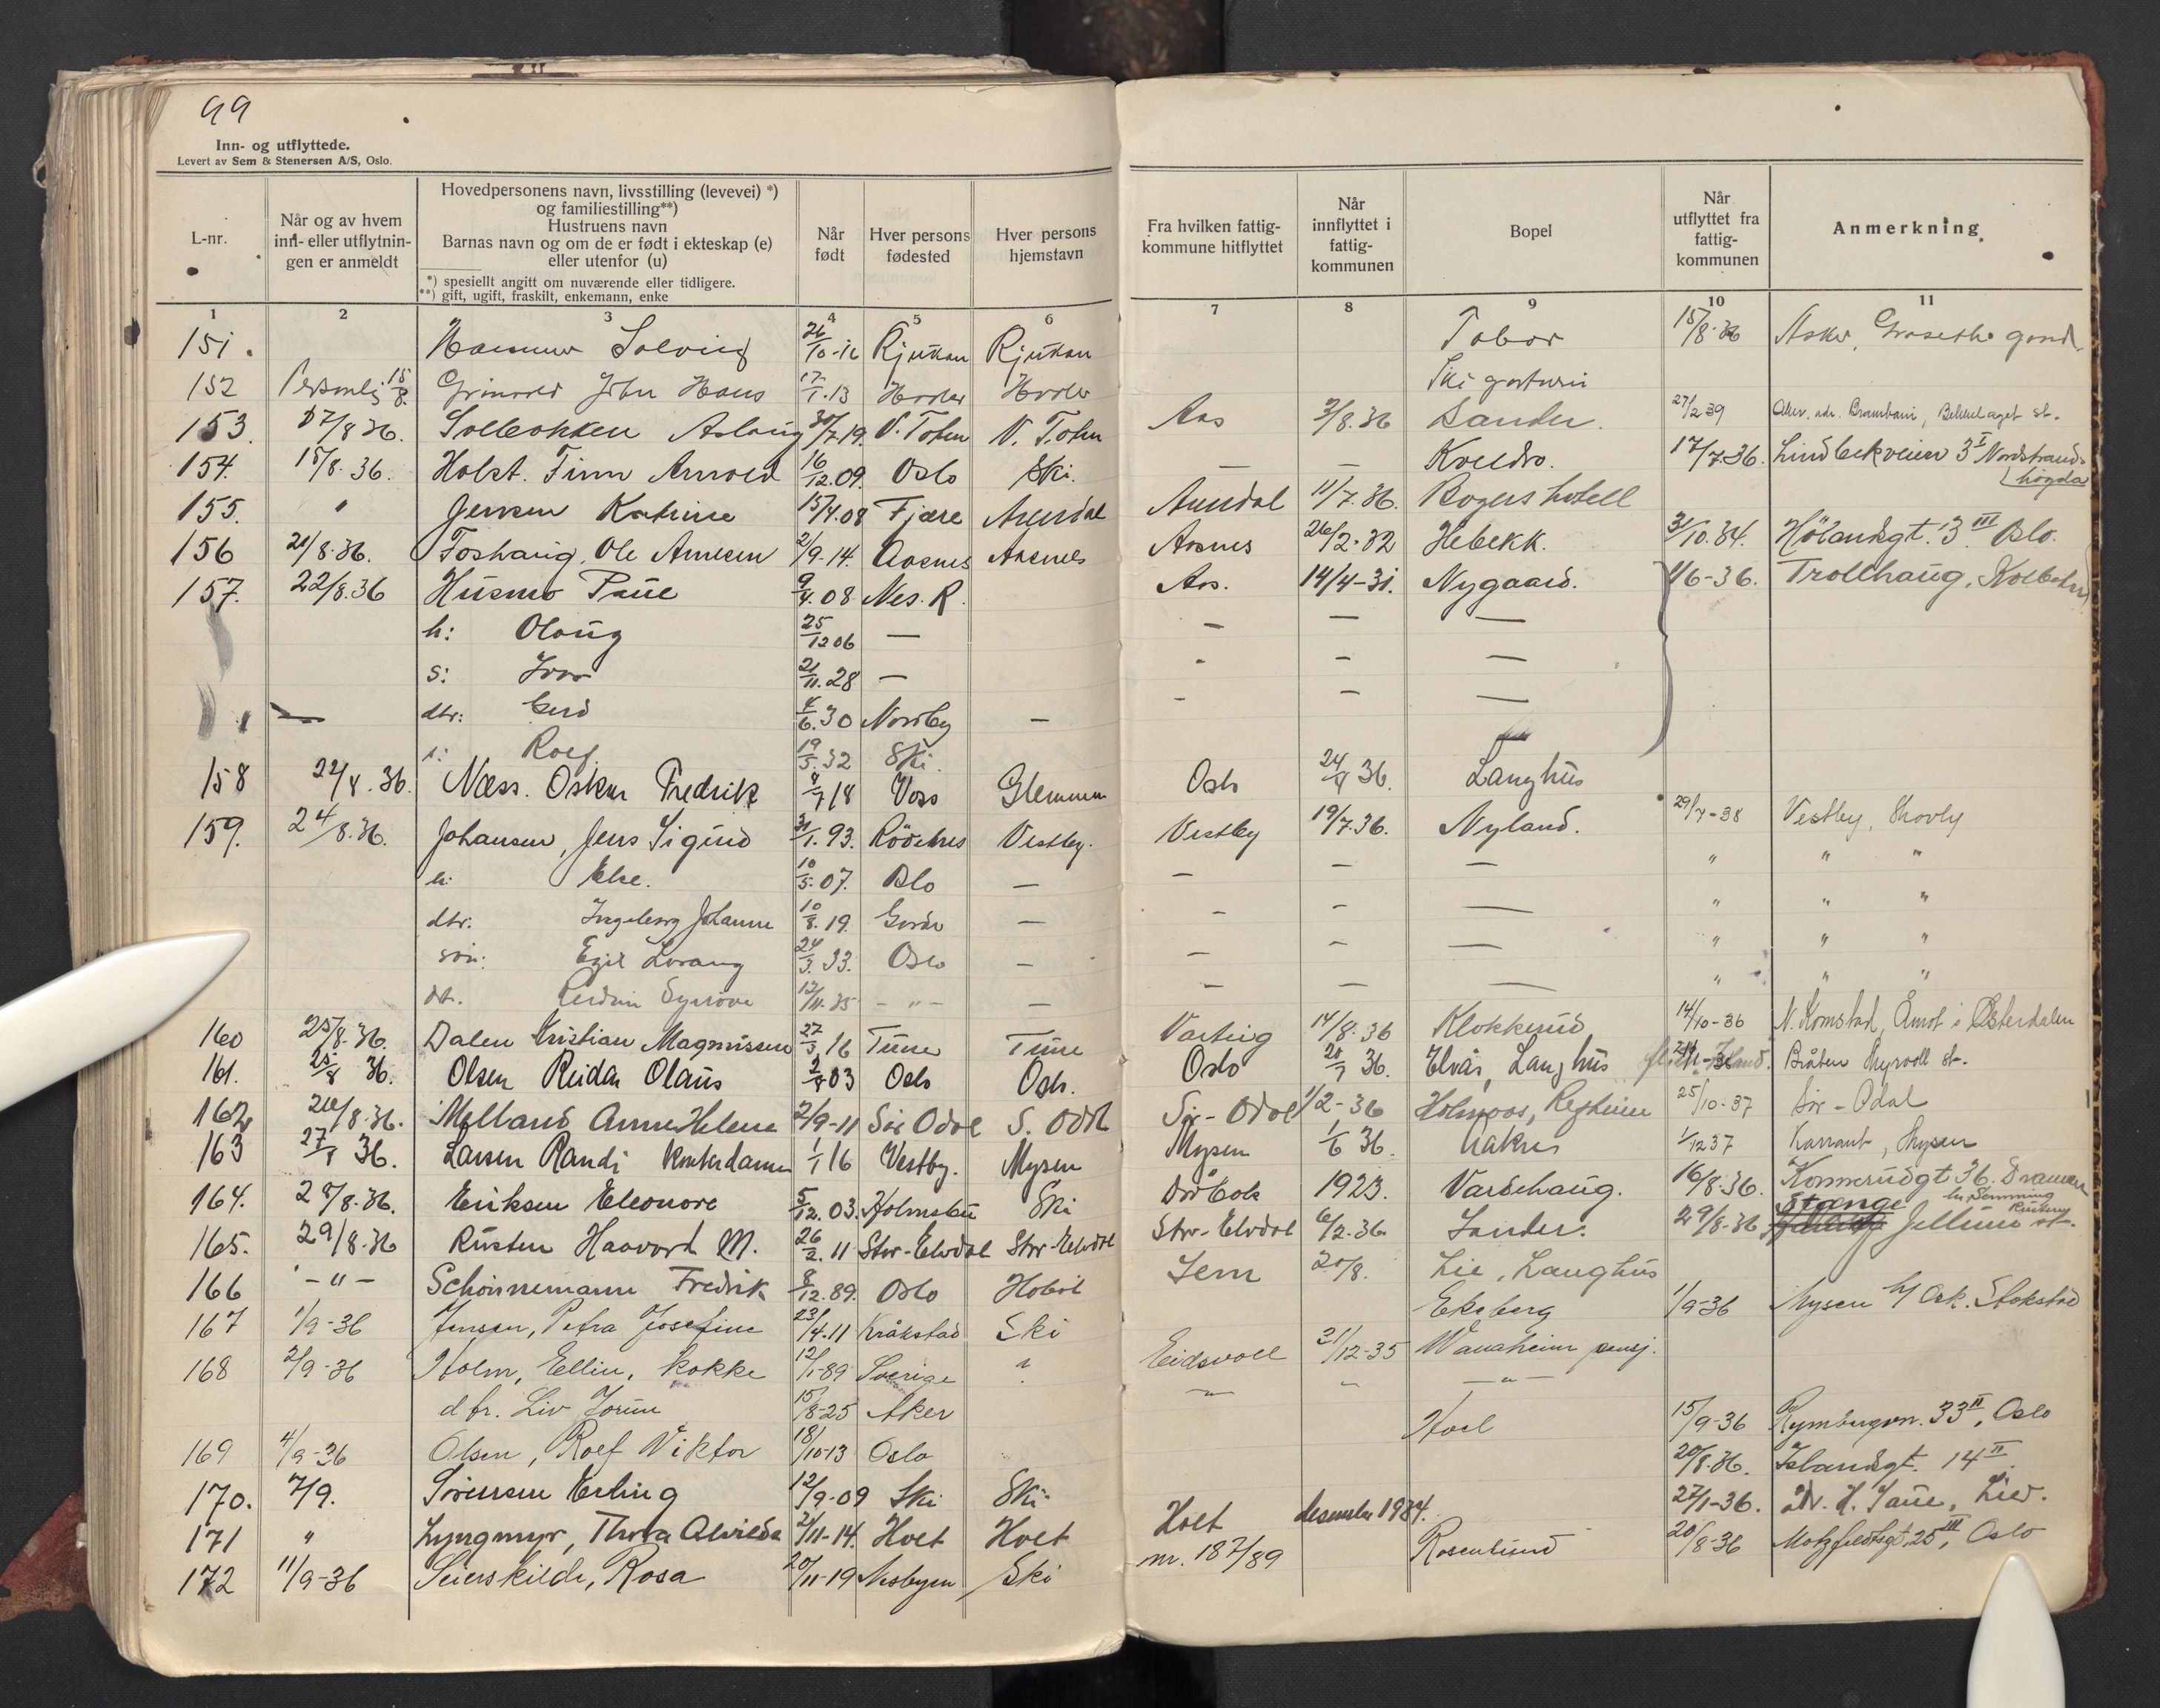 99
Inn- og utflyttede.
Levert av Sem & Stenersen A/S, Oslo.
L-nr.
Når og av hvem
inn- eller utflytnin-
gen er anmeldt
Hovedpersonens navn, livsstilling (levevei) *)
og familiestilling**)
Hustruens navn
Barnas navn og om de er født i ekteskap (e)
eller utenfor (u)
*) spesiellt angitt om nuværende eller tidligere.
**) gift, ugift, fraskilt, enkemann, enke
Når
født
Hver persons
fødested
Hver persons
hjemstavn
Fra hvilken fattig-
kommune hitflyttet
Når
innflyttet i
fattig-
kommunen
Bopel
Når
utflyttet fra
fattig-
kommunen
Anmerkning
1 2 3 4 5 6 7 8 9 10 11
151. Solveig 26/10-16 Rjukan Rjukan Tabor 15/8-36 Asker,
152 Personlig 15/8. John Hans 17/1.13 Ski
153. 17/8 36. Aslaug 30/7.19. V. Toten V. Toten Aas 3/8.36 Sander. 27/2 39 Bekkelaget st.
154. 15/8.36. Holst. Finn Arnold 16/12.09. Oslo Ski. — — Kveldro. 17/7.36. Lindbekveien 3 I Nordstrands
högda
155. " Jensen Katrine 15/4.08 Fjære Arendal Arendal 11/7.36. Rogers hotell
156 21/8.36. Toshaug, Ole Arnesen 2/9.14. Aasnes Aasnes Aasnes 26/2.32 Hebekk. 31/10.34. Hölandsgt. 3 III Oslo.
157. 22/8.36 Husmo Paul 9/4.08 Nes. R. Aas. 14/4-31. Nygaard. 1/6-36. Trollhaug, Kolbotn
h: Olaug 25/12 06 — — — —
s: Ivar 21/11.28 — - — —
dtr: Gerd 4/6.30 Nordby — — — —
s: Rolf 19/5.32 Ski.
158 22/8.36. Næss. Oskar Fredrik 8/7 18 Voss Glemmen Oslo 24/8 36. Langhus
159. 24/8.36. Johansen, Jens Sigurd 31/1.93. Rödenes Vestby. Vestby 19/7.36. Nyland. 29/7-38 Vestby,
h: Else. 10/5.07. Oslo — — — — " " "
dtr. Ingeborg Johanne 10/8.19. — - - — " " "
sön: Egil 24/3.33. Oslo — — - — " " "
dt. 12/11.35 - " - — — — — " " "
160 25/8.36. Dalen Kristian Magnussen 27/3.16 Tune Tune Varteig 14/8.36 Klokkerud 14/10-36 N. Komstad, Åmot i Østerdalen
161. 25/8 36. Olsen Reidar Olaus 2/8 03 Oslo Oslo. Oslo 20/7 36. Elvås, Langhus Bråten Myrvoll st.
162 26/8.36. Melland Anne Helene 2/9-11 Sör Odal S. Odal Sör-Odal 1/2-36 Holmaas, 25/10-37 Sör-Odal
163 27/8 36. Larsen Randi Kontordame 1/1 16 Vestby. Mysen Mysen 1/6 36. 1/12 37 Mysen
164. 28/8.36. Eriksen Eleonore 5/12.03. Holmsbu Ski Dröbak 1923. Vardehaug. 16/8.36. Konnerudgt 36. Drammen
165. 29/8.36 Rusten Haavard M. 26/2.11 Stor-Elvdal Stor-Elvdal Stor-Elvdal 6/2.36. Sander. 29/8-36 Stange Jellum st.
166 - " - Schönnemann Fredrik 8/12.89. Oslo Hoböl Sem 20/8. Lie, Langhus
167 1/9-36 Jensen, Petra Josefine 23/4.11 Kråkstad Ski Ekeberg 1/9-36 Mysen h/ Osk. Stokstad
168 2/9-36 Holm, Ellin, kokke 12/1-89 Sverige " Eidsvoll 31/12-35 Wanaheim pensj.
dtr. Liv Jorun 15/8-25 Aker " - - " -
169 4/9-36 Olsen, Rolf Viktor 18/10-13 Oslo Hoel 15/9-36 33 II, Oslo
170. 7/9. Sörensen Erling 12/9-09 Ski Ski 20/8.36. Islandsgt. 14 II.
171 " Lyngmyr, Thora Alvilda 2/11-14. Holt Holt Holt desember 1934. 27/1-36. Lier.
172 11/9-36 Seierskilde, Rosa 20/11-19 Nesbyen Ski nr. 187/89 Rosenlund 20/8-36 Motzfeldtsgt. 25 III, Oslo